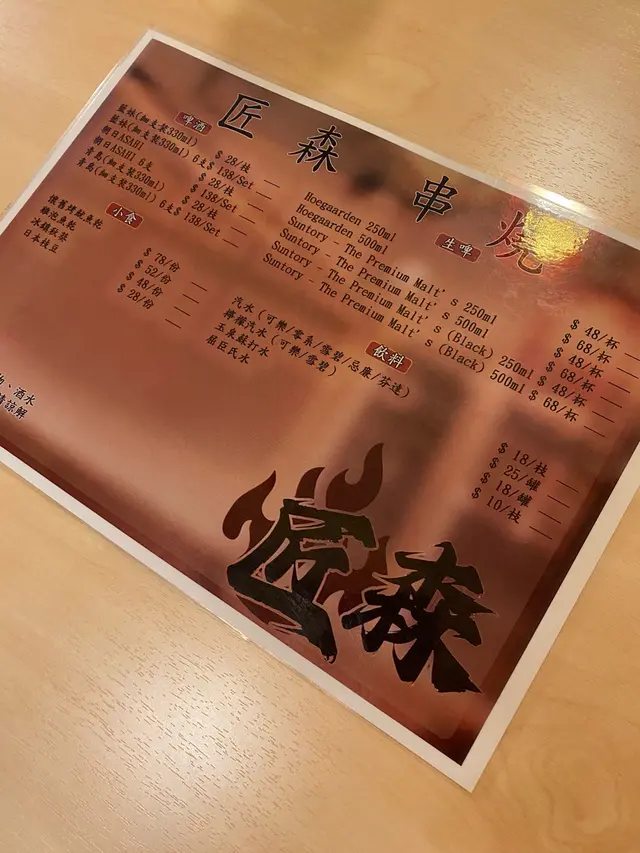 匠 森 串 燒
啤酒
藍妹(細支裝330ml) $ 28/枝
藍妹(細支裝330ml) 6支$ 138/Set
朝日ASAHI $ 28/枝
朝日ASAHI 6支 $ 138/Set
青島(細支裝330ml) $ 28/枝
青島(細支裝330ml) 6支$ 138/Set
小食
懷舊烤魷魚乾 $ 78/份
雞泡魚乾 $ 52/份
冰鎮秋葵 $ 48/份
日本枝豆 $ 28/份
生啤
Hoegaarden 250ml $ 48/杯
Hoegaarden 500ml $ 68/杯
Suntory - The Premium Malt's 250ml $ 48/杯
Suntory - The Premium Malt's 500ml $ 68/杯
Suntory - The Premium Malt's (Black) 250ml $ 48/杯
Suntory - The Premium Malt's (Black) 500ml $ 68/杯
飲料
汽水 (可樂/零系/雪碧/忌廉/芬達) $ 18/枝
汽水 (可樂/雪碧) $ 25/罐
玉泉蘇打水 $ 18/罐
屈臣氏水 $ 10/枝
、酒水
請諒解
匠森